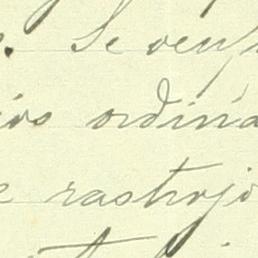 . Se ocup
ios ordina
e rastrojo